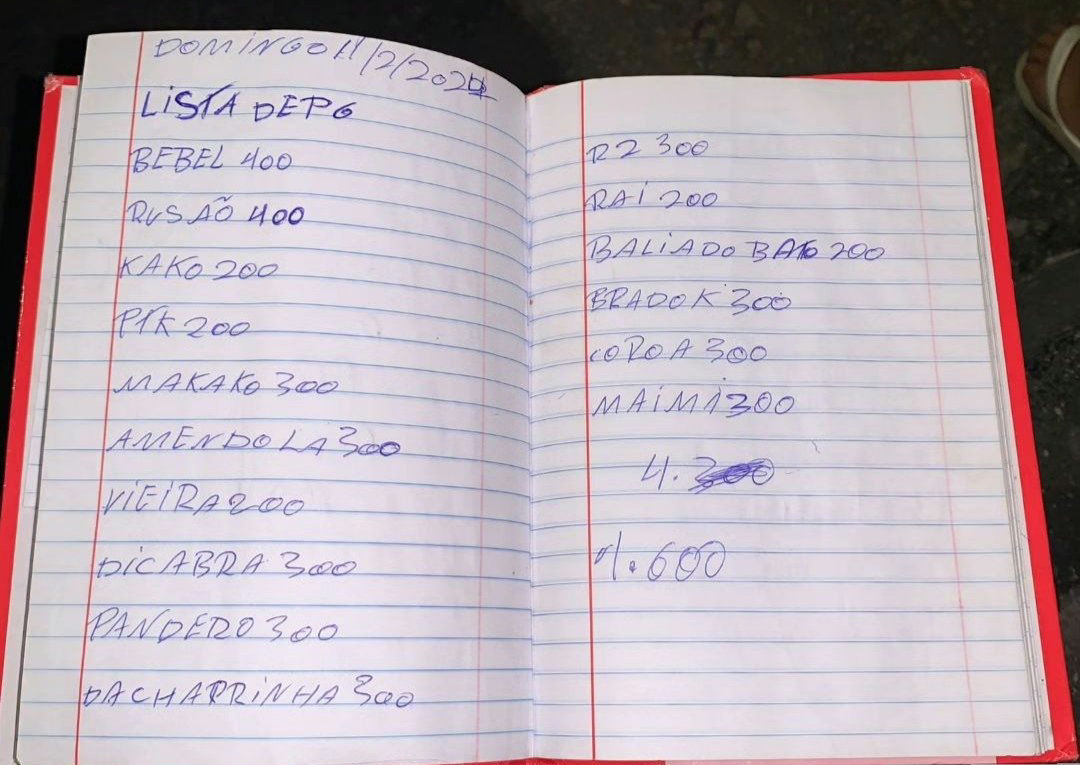 DOMINGO 11/2/2024
LISTA DE PG
BEBEL 400
RUSÃO 400
KAKO 200
PTK 200
MAKAKO 300
AMENDOLA 300
VIEIRA 200
DICABRA 300
PANDERO 300
DACHARRINHA 300
R2 300
RAI 200
BALIADO 200
BRADOK 300
COROA 300
MAIMI 300
4.
4.600